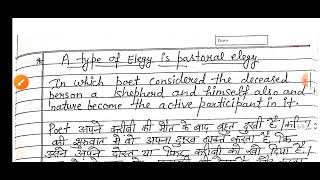 Date
* A type of Elegy is pastoral elegy
In which poet considered the deceased
person a shepherd and himself also and
nature become the active participant in it.
Poet अपने करीबी की मौत के बाद बहुत दुखी हैं।
की शुरुवात में वो अपना दुख व्यक्त करता है कि
उसने अपने दोस्त या किसी करीबी को खो दिया है।